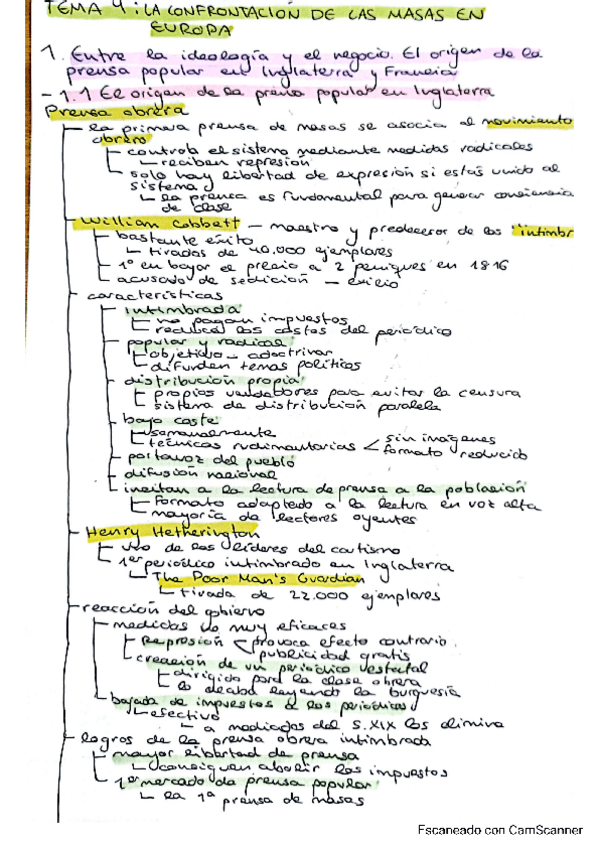 TEMA 4: LA CONFRONTACIÓN DE LAS MASAS EN
EUROPA
1. Entre la ideología y el negocio. El origen de la
prensa popular en Inglaterra y Francia
- 1.1 El origen de la prensa popular en Inglaterra
Prensa obrera
la primera prensa de masas se asocia al movimiento
obrero
controla el sistema mediante medidas radicales
reciben represión
solo hay libertad de expresión si estás unido al
sistema
la prensa es fundamental para generar conciencia
de clase
William Cobbett - maestro y predecesor de los "intimbr
bastante éxito
tiradas de 40.000 ejemplares
1º en bajar el precio a 2 peniques en 1816
acusado de sedición - exilio
características
intimbrada
no pagan impuestos
reducía los costes del periódico
popular y radical
objetivo - adoctrinar
difunden temas políticos
distribución propia
propios vendedores para evitar la censura
sistema de distribución paralela
bajo coste
semanalmente
técnicas rudimentarias < sin imágenes
formato reducido
portavoz del pueblo
difusión nacional
incitan a la lectura de prensa a la población
formato adaptado a la lectura en voz alta
mayoría de lectores oyentes
Henry Hetherington
uno de los líderes del cartismo
1er periódico intimbrado en Inglaterra
The Poor Man's Guardian
tirada de 22.000 ejemplares
reacción del gobierno
medidas no muy eficaces
Represión < provoca efecto contrario
publicidad gratis
creación de un periódico
dirigido para la clase obrera
lo acaba leyendo la burguesía
bajada de impuestos a los periódicos
efectivo
a mediados del S.XIX los elimina
logros de la prensa obrera intimbrada
mayor libertad de prensa
consiguen abolir los impuestos
1er mercado de prensa popular
la 1ª prensa de masas
Escaneado con CamScanner